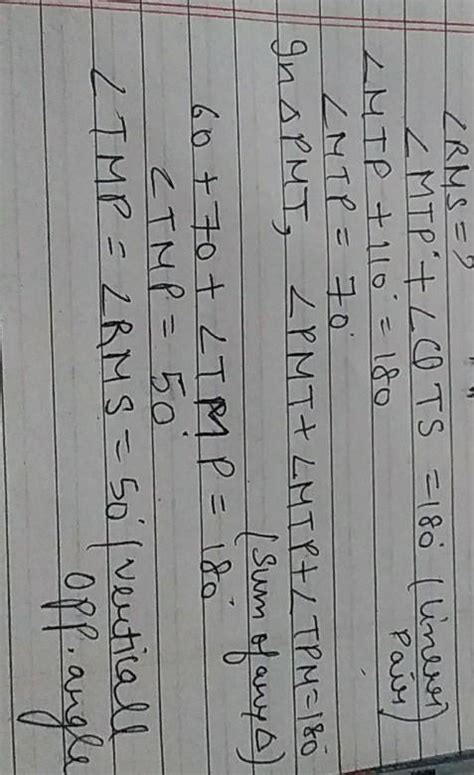 ∠RMS = ?
∠MTP + ∠QTS = 180° (linear pair)
∠MTP + 110° = 180
∠MTP = 70°
In △PMT, ∠PMT + ∠MTP + ∠TPM = 180°
(Sum of any △)
60 + 70 + ∠TMP = 180
∠TMP = 50°
∠TMP = ∠RMS = 50° (verticall
opp. angle